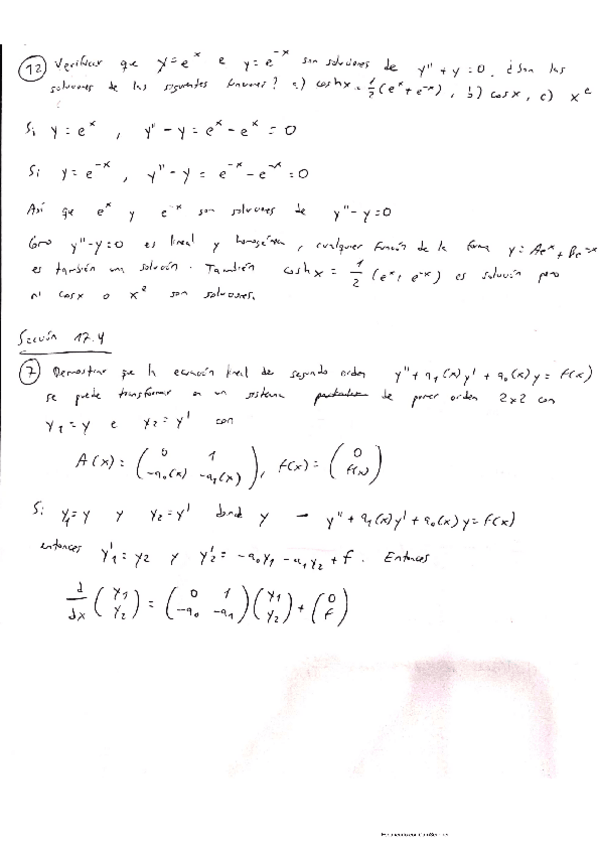 12 Verificar que y=e^x e y=e^-x son soluciones de y''+y=0. ¿Son las
soluciones de las siguientes funciones? a) coshx=1/2(e^x+e^-x), b) cosx, c) x^e
Si y=e^x, y''-y=e^x-e^x=0
Si y=e^-x, y''-y=e^-x-e^-x=0
Así que e^x y e^-x son soluciones de y''-y=0
Como y''-y=0 es lineal y homogénea, cualquier función de la forma y=Ae^x+Be^-x
es también una solución. También coshx=1/2(e^x+e^-x) es solución pero
ni cosx o x^2 son soluciones.
Sección 17.4
7 Demostrar que la ecuación lineal de segundo orden y''+a1(x)y'+a0(x)y=f(x)
se puede transformar en un sistema de primer orden 2x2 con
y1=y e y2=y' con
A(x)=(0 1 -a0(x) -a1(x)), f(x)=(0 f(x))
Si y1=y y y2=y' dond y → y''+a1(x)y'+a0(x)y=f(x)
entonces y'1=y2 y y'2=-a0y1-a1y2+f. Entonces
d/dx(y1 y2)=(0 1 -a0 -a1)(y1 y2)+(0 f)